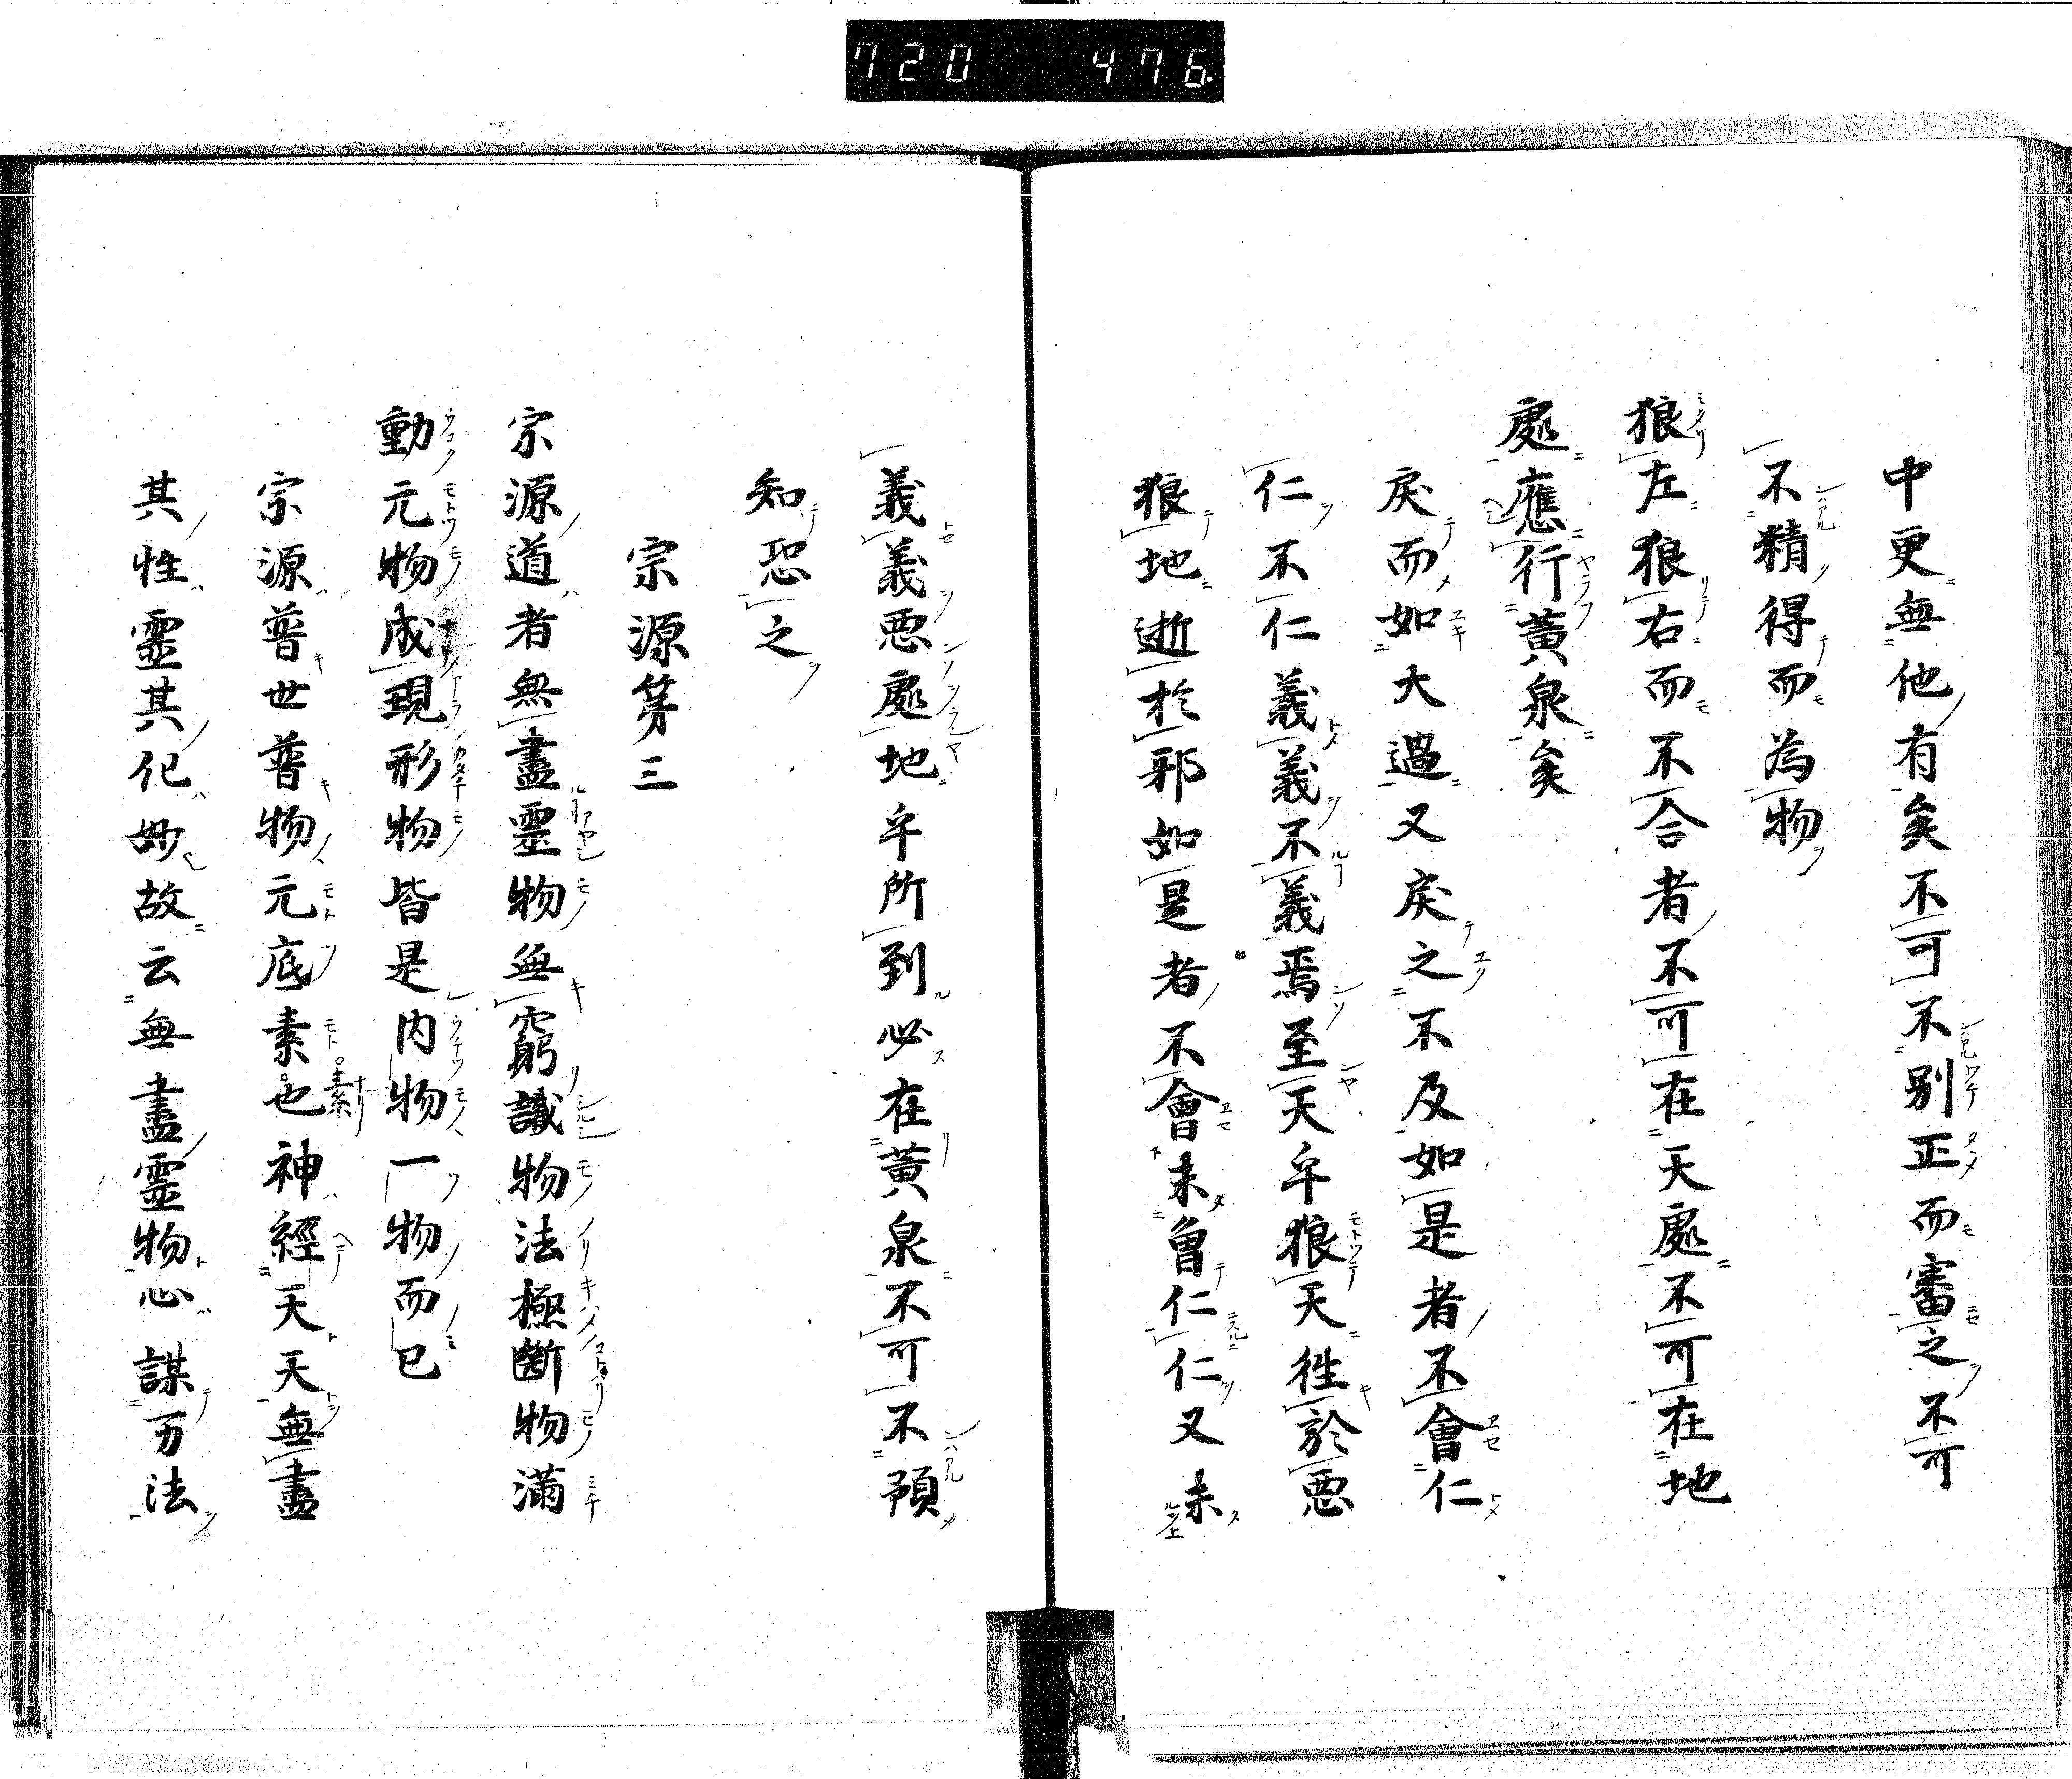 720 476
中更無他有矣不可不別正而審之不可
不精得而為物
狼左狼右而不合者不可在天處不可在地
處應行黃泉矣
戾而如大過又戾之不及如是者不會仁
仁不仁義義不義焉至天乎狼天徃於惡
狼地逝於邪如是者不會未曾仁仁又未
義義惡處地乎所到必在黃泉不可不預
知恐之
宗源第三
宗源道者無盡靈物無窮識物法極斷物滿
動元物成現形物皆是内物一物而已
宗源普世普物元底素也神經天天無盡
其性靈其化妙故云無盡靈物心謀万法